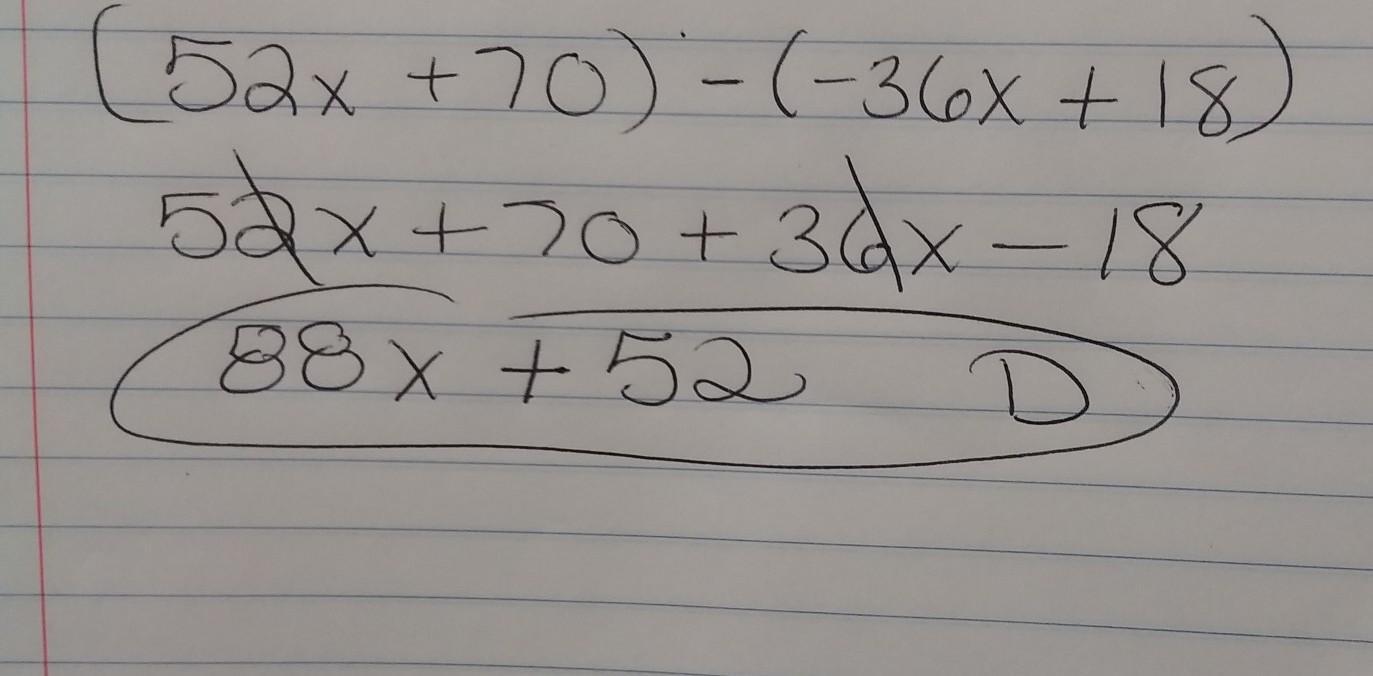 (52x + 70) - (-36x + 18)
52x + 70 + 36x - 18
88x + 52 D